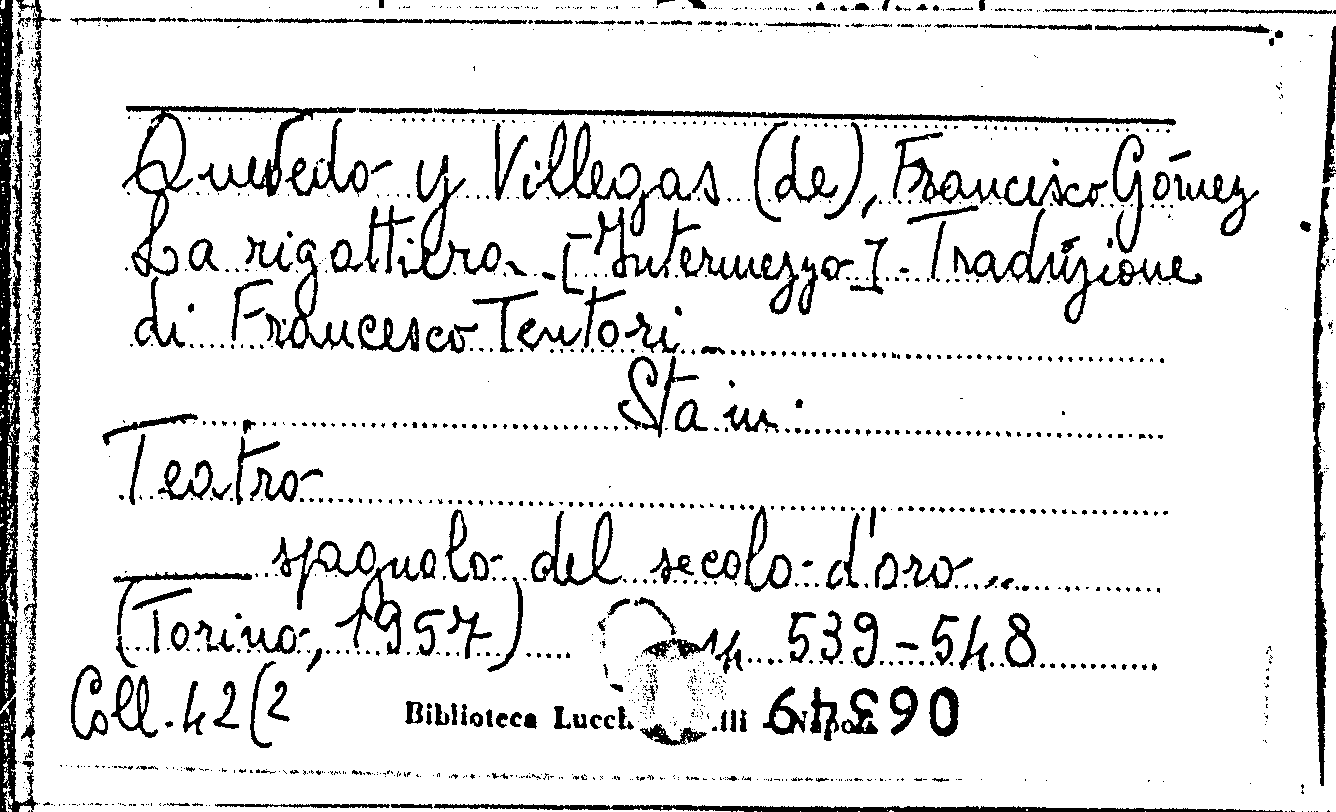 Quevedo y Villegas (de), Francisco Gómez
La rigattiera. - [Intermezzo]. Traduzione
di Francesco Tentori -
Sta in:
Teatro
spagnolo del secolo d'oro...
(Torino, 1957) pp. 539-548
Coll. 42(2
Biblioteca Lucch lli - Napoli 063449